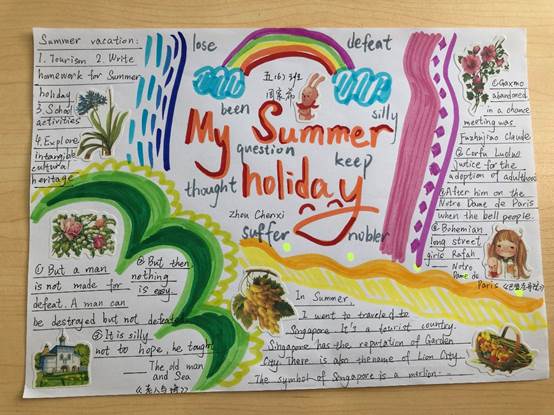 Summer vacation:
1. Tourism 2. Write
homework for Summer
holiday
3. School
activities
4. Explore
intangible
cultural
heritage
lose
defeat
been
silly
My Summer
question
keep
thought
holiday
Zhou Chenxi
suffer
nobler
① But a man
is not made for
defeat. A man can
be destroyed but not defeated
② But then,
nothing
is easy.
③ It is silly
not to hope, he taught
—— The old man
and Sea
《老人与海》
① Gaxmo
abandoned
in a chance
meeting was
Fuzhujiao Claude
② Corfu Luoluo
justice for the
adoption of adulthood
③ After him on the
Notre Dame de Paris
when the bell people.
④ Bohemian
long street
girls Rafah
—— Notre
Dame de
Paris 《巴黎圣母院》
In Summer,
I went to traveled to
Singapore It's a tourist country.
Singapore has the reputation of Garden
City. There is also the name of Lion City.
The symbol of Singapore is a merlion.